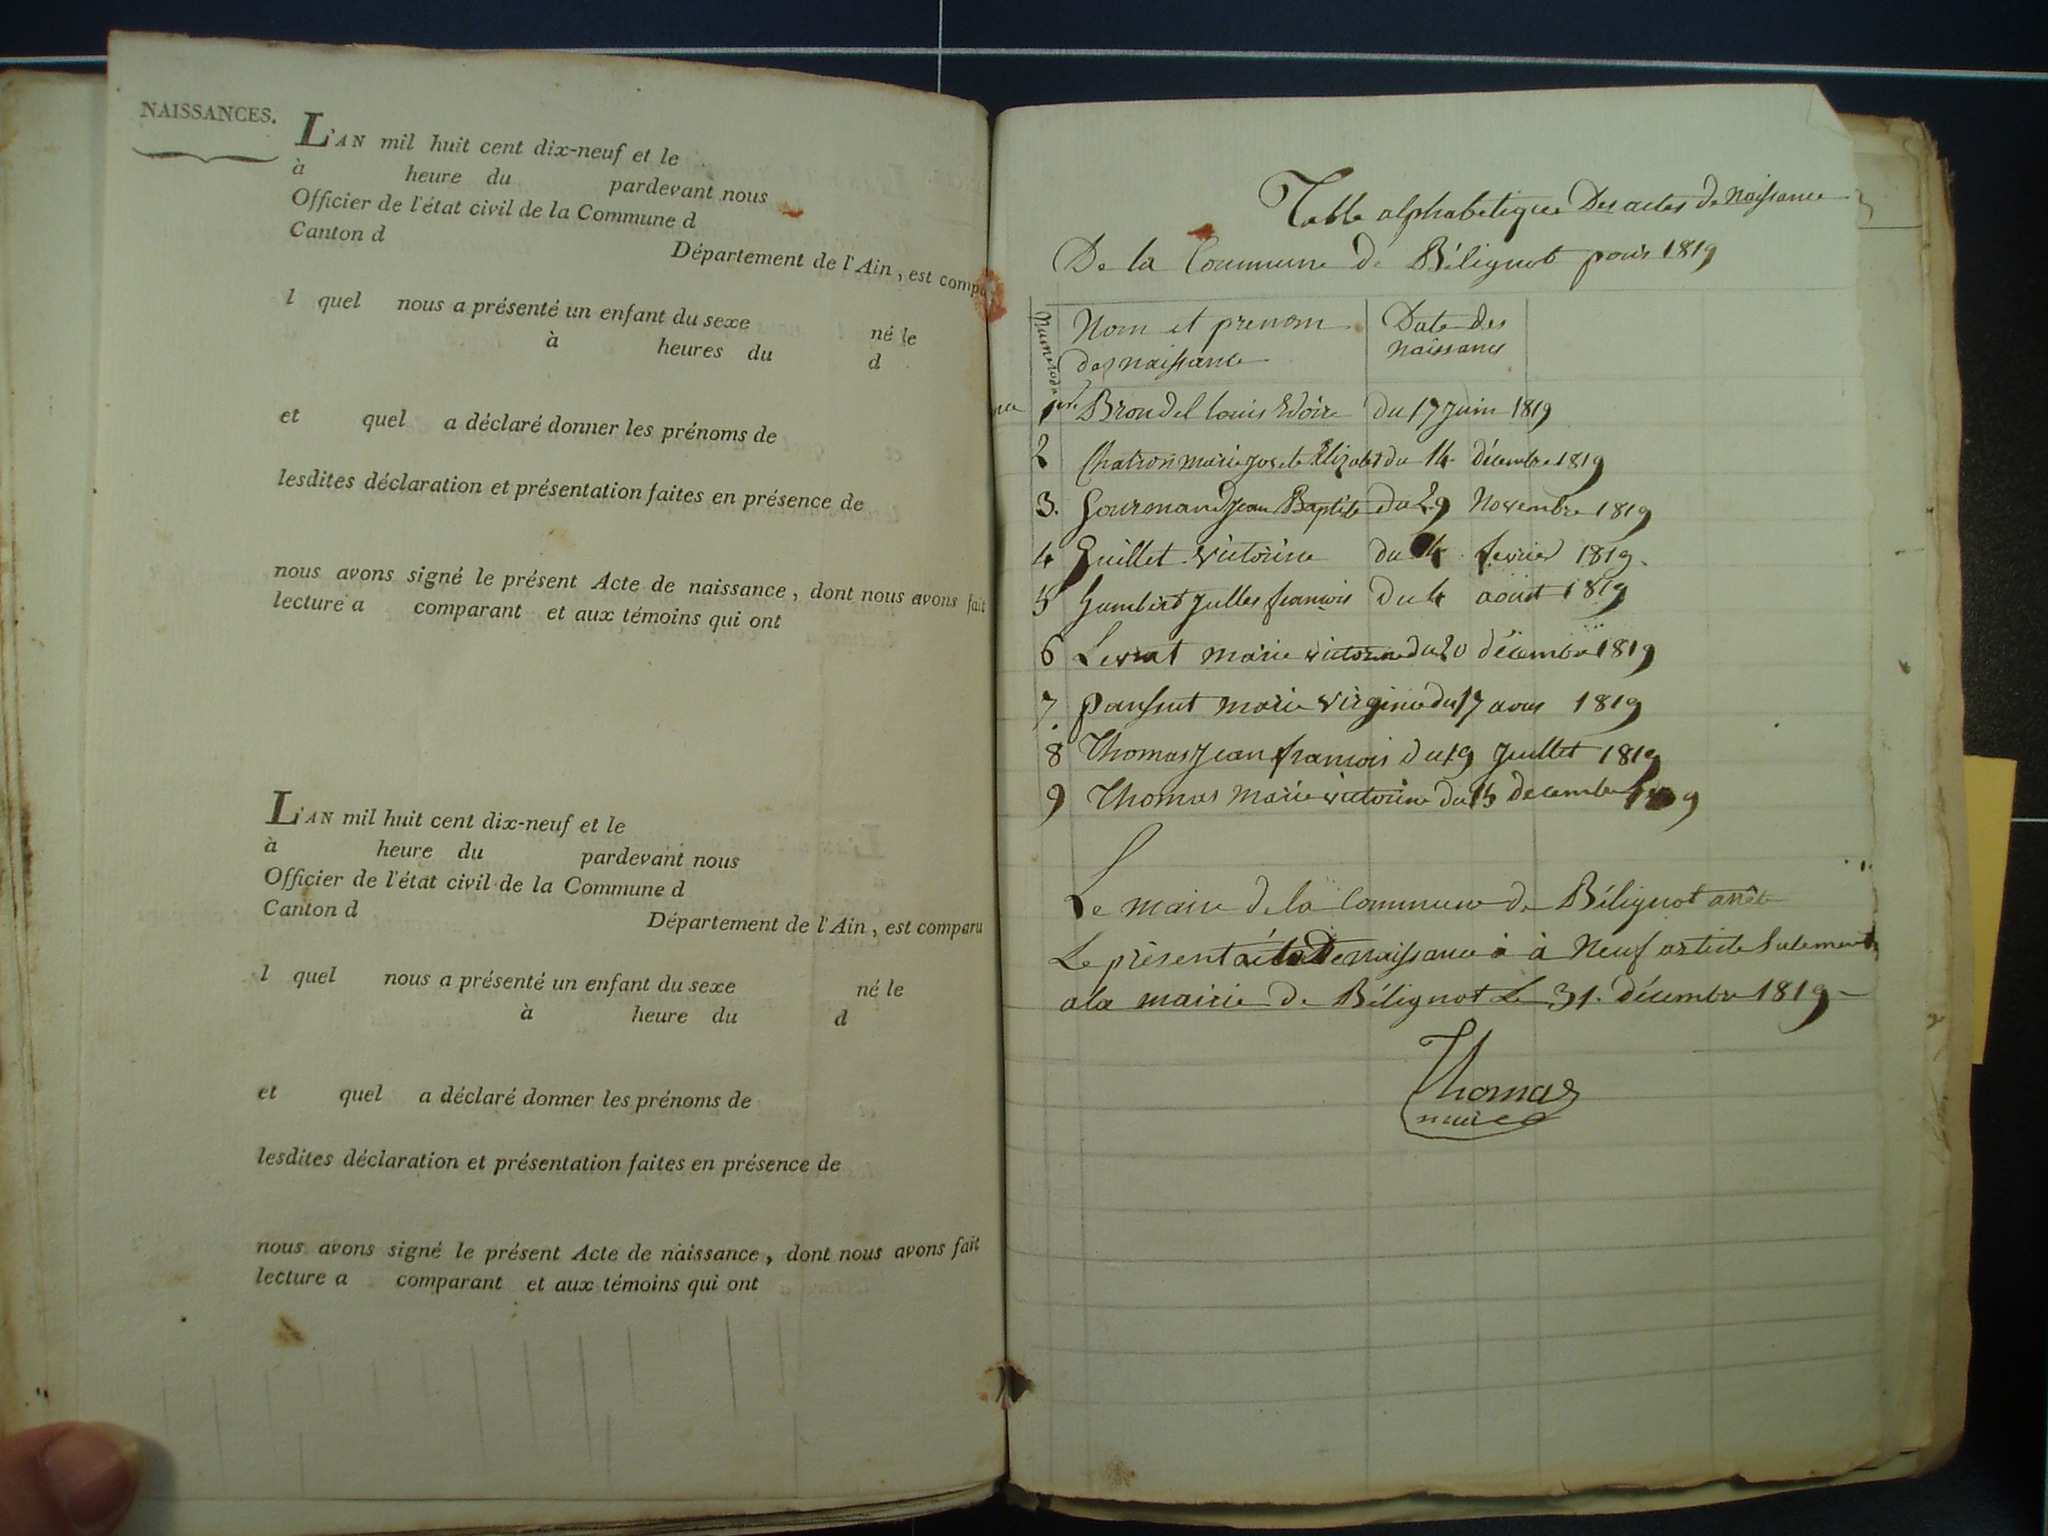 NAISSANCES.
L'AN mil huit cent dix-neuf et le
à heure du pardevant nous
Officier de l'état civil de la Commune d
Canton d
Département de l'Ain, est compa
l quel nous a présenté un enfant du sexe né le
à heures du d
et quel a déclaré donner les prénoms de
lesdites déclaration et présentation faites en présence de
nous avons signé le présent Acte de naissance, dont nous avons fait
lecture a comparant et aux témoins qui ont
L'AN mil huit cent dix-neuf et le
à heure du pardevant nous
Officier de l'état civil de la Commune d
Canton d
Département de l'Ain, est comparu
l quel nous a présenté un enfant du sexe né le
à heure du d
et quel a déclaré donner les prénoms de
lesdites déclaration et présentation faites en présence de
nous avons signé le présent Acte de naissance, dont nous avons fait
lecture a comparant et aux témoins qui ont
Table alphabetique Des actes De Naissance
De la Commune de Bélignot pour 1819
Nom et prenom Date des
des naissance naissance
1 Brondel louis du 17 Juin 1819
2 Chatron marie du 14 décembre 1819
3. Gourmand Jean Baptiste du 29 Novembre 1819
4 Guillet Victorine du 4 fevrier 1819.
5 Humbert Julles francois du 4 aout 1819
6 Levrat marie victorine du 20 décembre 1819
7 marie Virginie du 17 1819
8 Thomas Jean francois du 19 Juillet 1819
9 Thomas Marie victorine du 15 decembre 1819
Le maire de la Commune de Bélignot arrête
Le présent naissance à Neuf article
a la mairie de Bélignot Le 31. décembre 1819
Thomas
maire